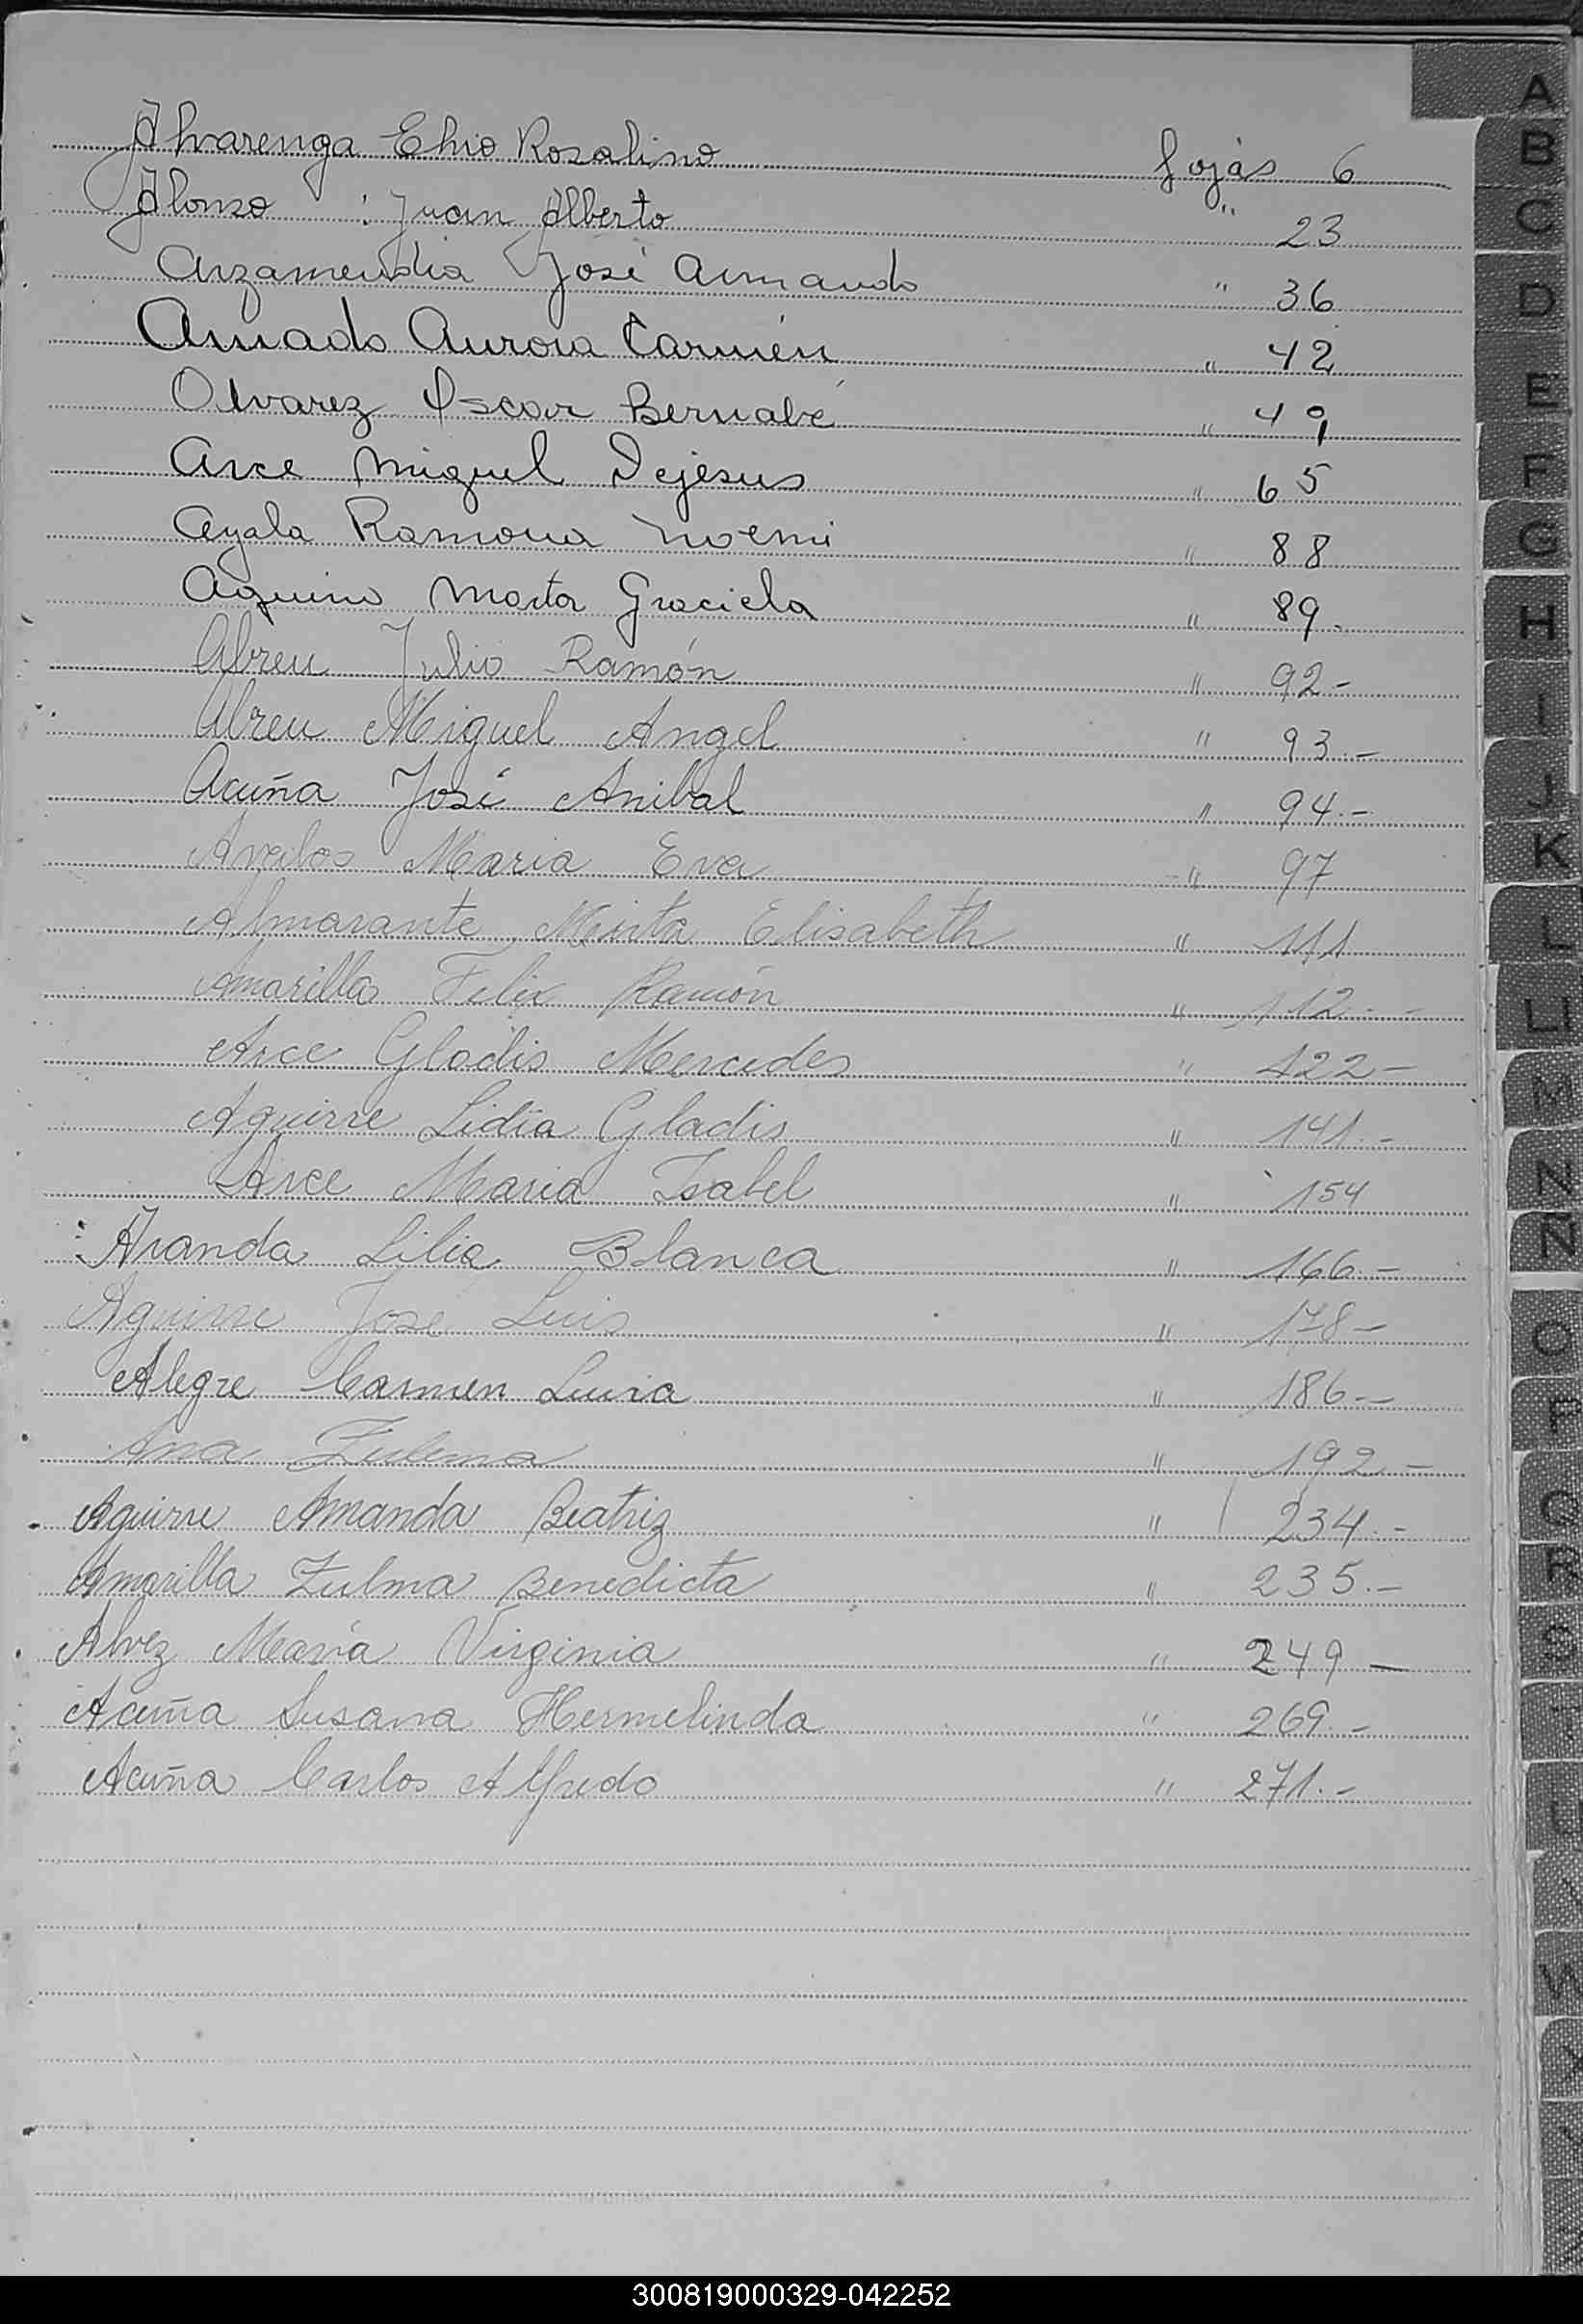 Alvarenga Elvio Rosalino fojas 6
Alonso : Juan Alberto " 23
Arzamendia José Armando " 36
Amado Aurora Carmen " 42
Alvarez Oscar Bernabé " 49
Arce Miguel Dejesus " 65
Ayala Ramona Noemi " 88
Aquino Marta Graciela " 89.
Abreu Julio Ramón " 92.-
Abreu Miguel Angel " 93.-
Acuña José Anibal " 94.-
Avalos Maria Eva " 97
Almarante Mirta Elisabeth " 111
Amarilla Felix Ramón " 112.-
Arce Gladis Mercedes " 122-
Aguirre Lidia Gladis " 141.-
Arce Maria Isabel " 154
Aranda Lilia Blanca " 166.-
Aguirre José Luis " 178-
Alegre Carmen Luisa " 186.-
Ana Zulema " 192.-
Aguirre Amanda Beatriz " 234.-
Amarilla Zulma Benedicta " 235.-
Alvez María Virginia " 249-
Acuña Susana Hermelinda " 269.-
Acuña Carlos Alfredo " 271.-
A
B
C
D
E
F
G
H
I
J
K
L
LL
M
N
Ñ
O
P
Q
R
S
T
U
V
W
X
Y
300819000329-042252